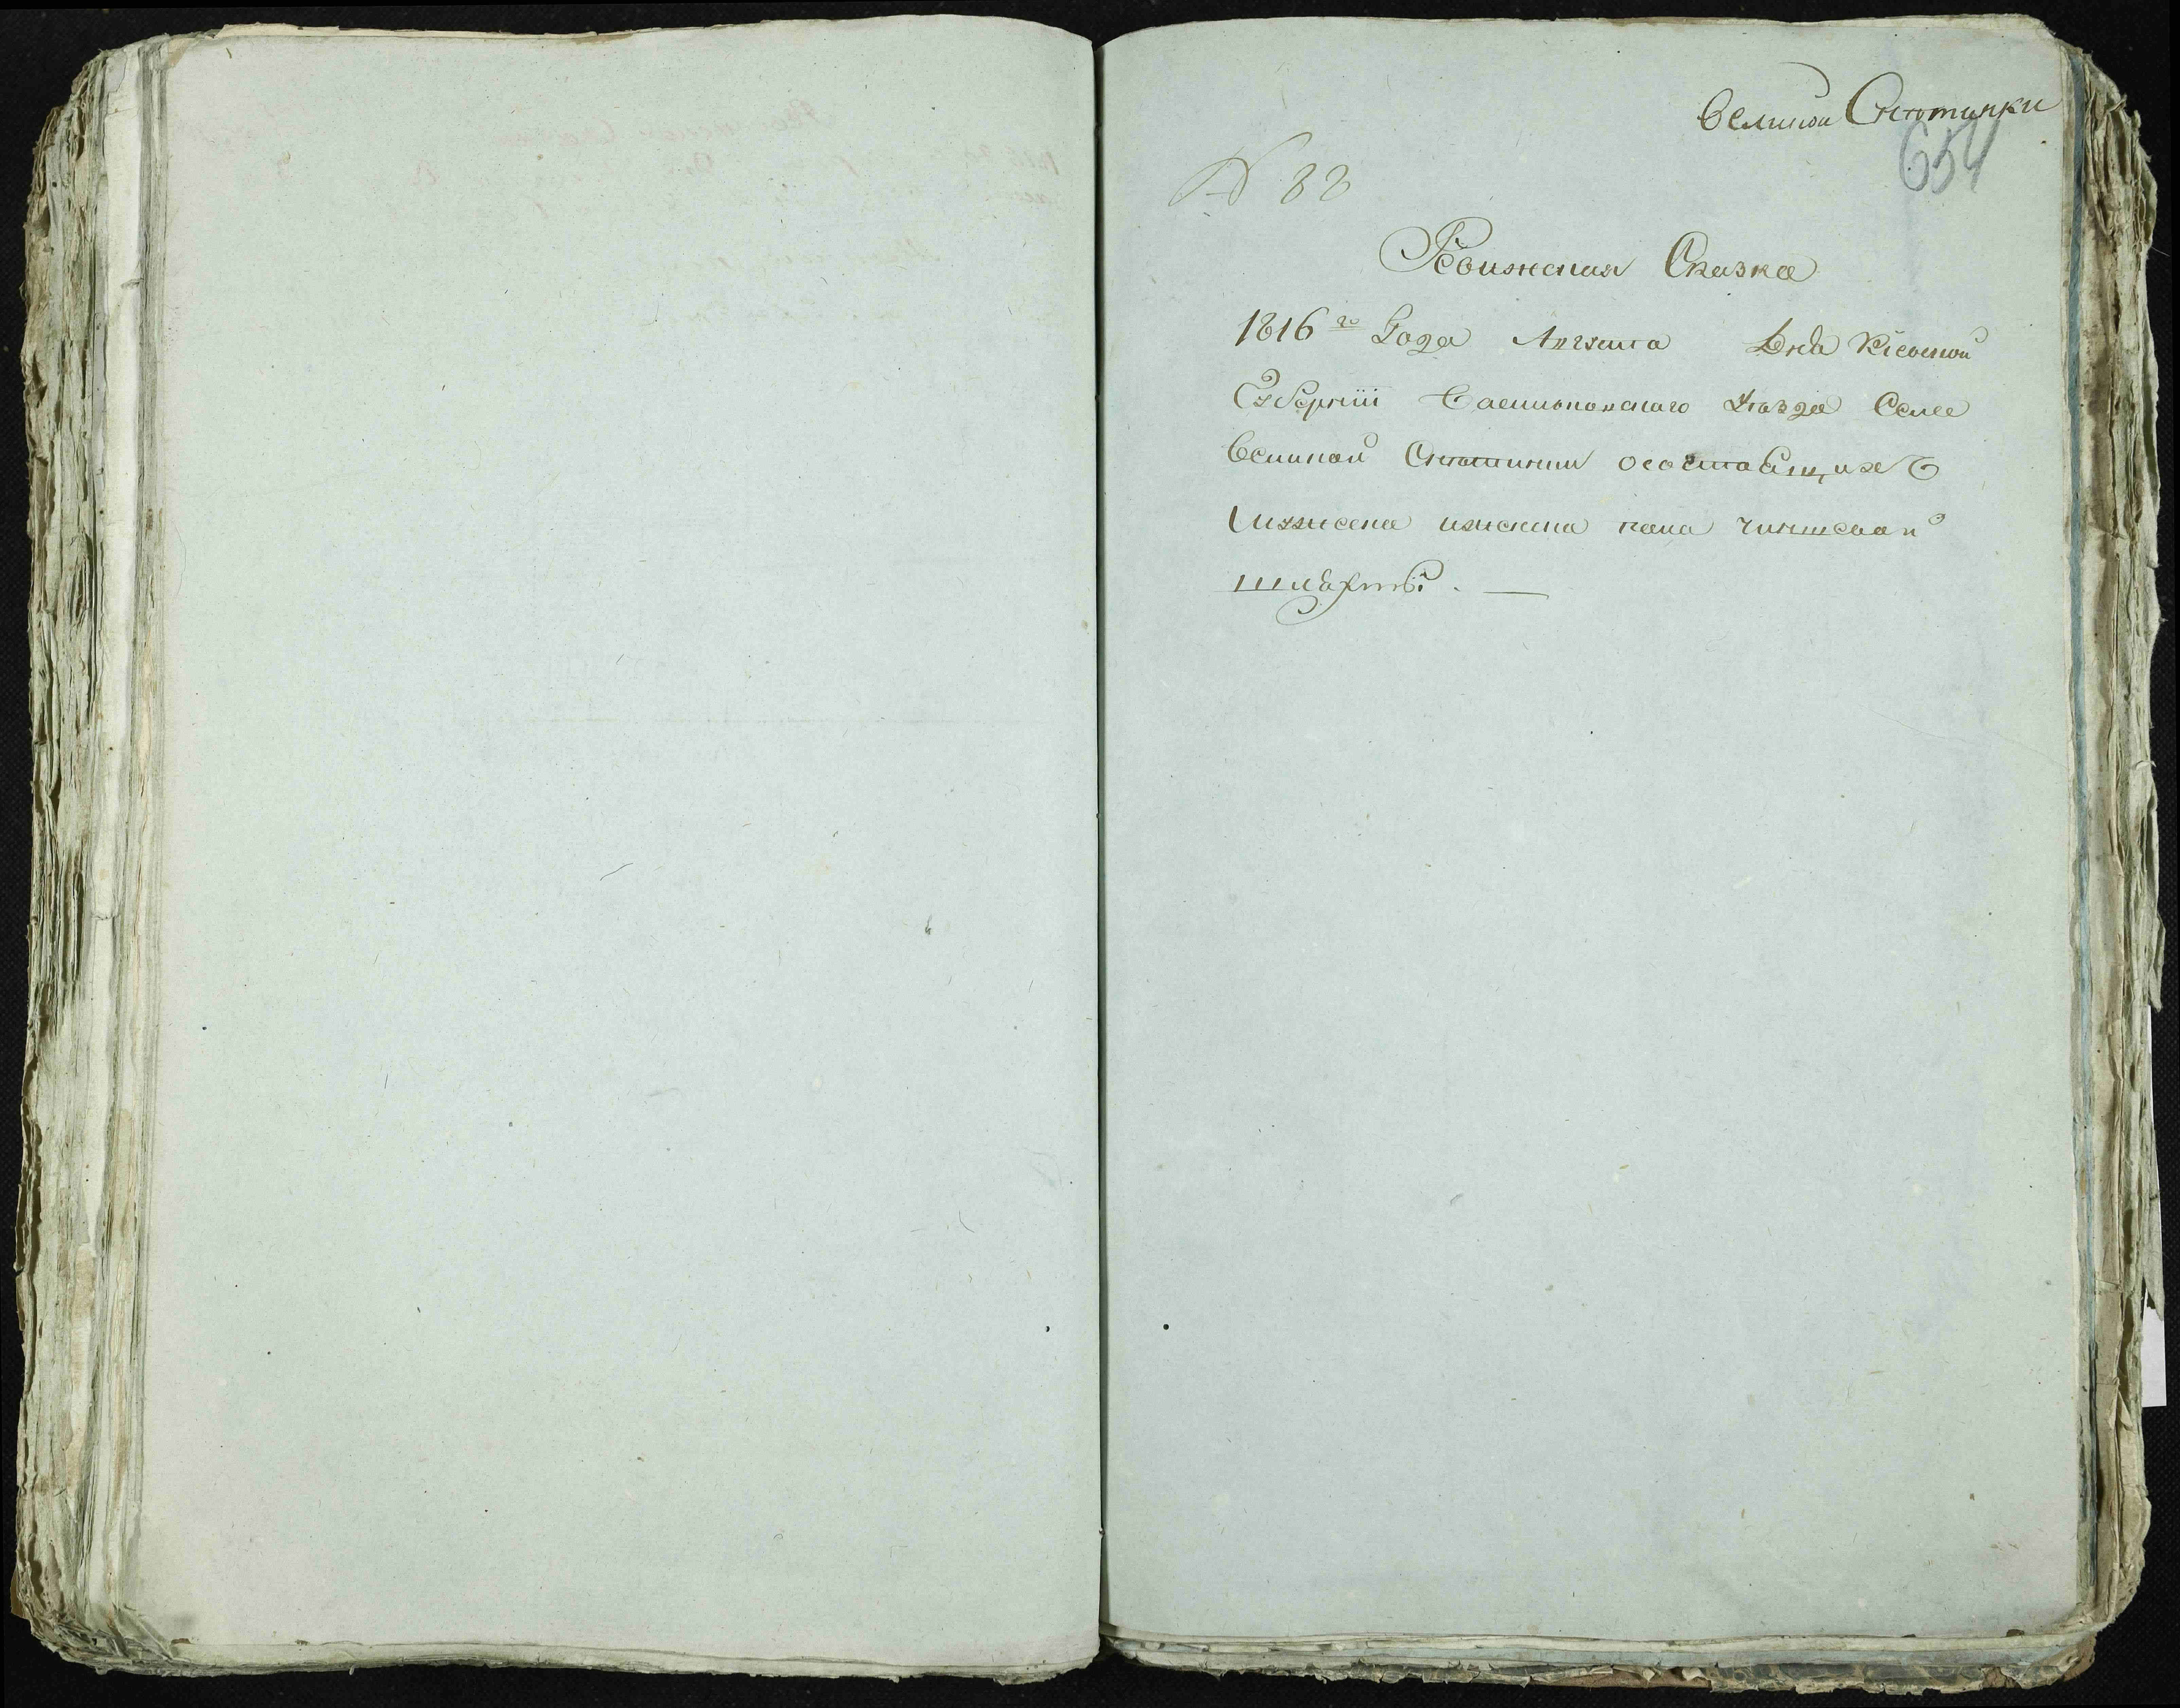 Великой Снѣтинки
654
№ 88
Ревижская Сказка
1816го Года Августа Дня Кіевской
Губерніи Васильковскаго Уезда Села
Великой Снѣтинки о состоящихъ
мужеска и женска пола чиншевой
шляхты. —